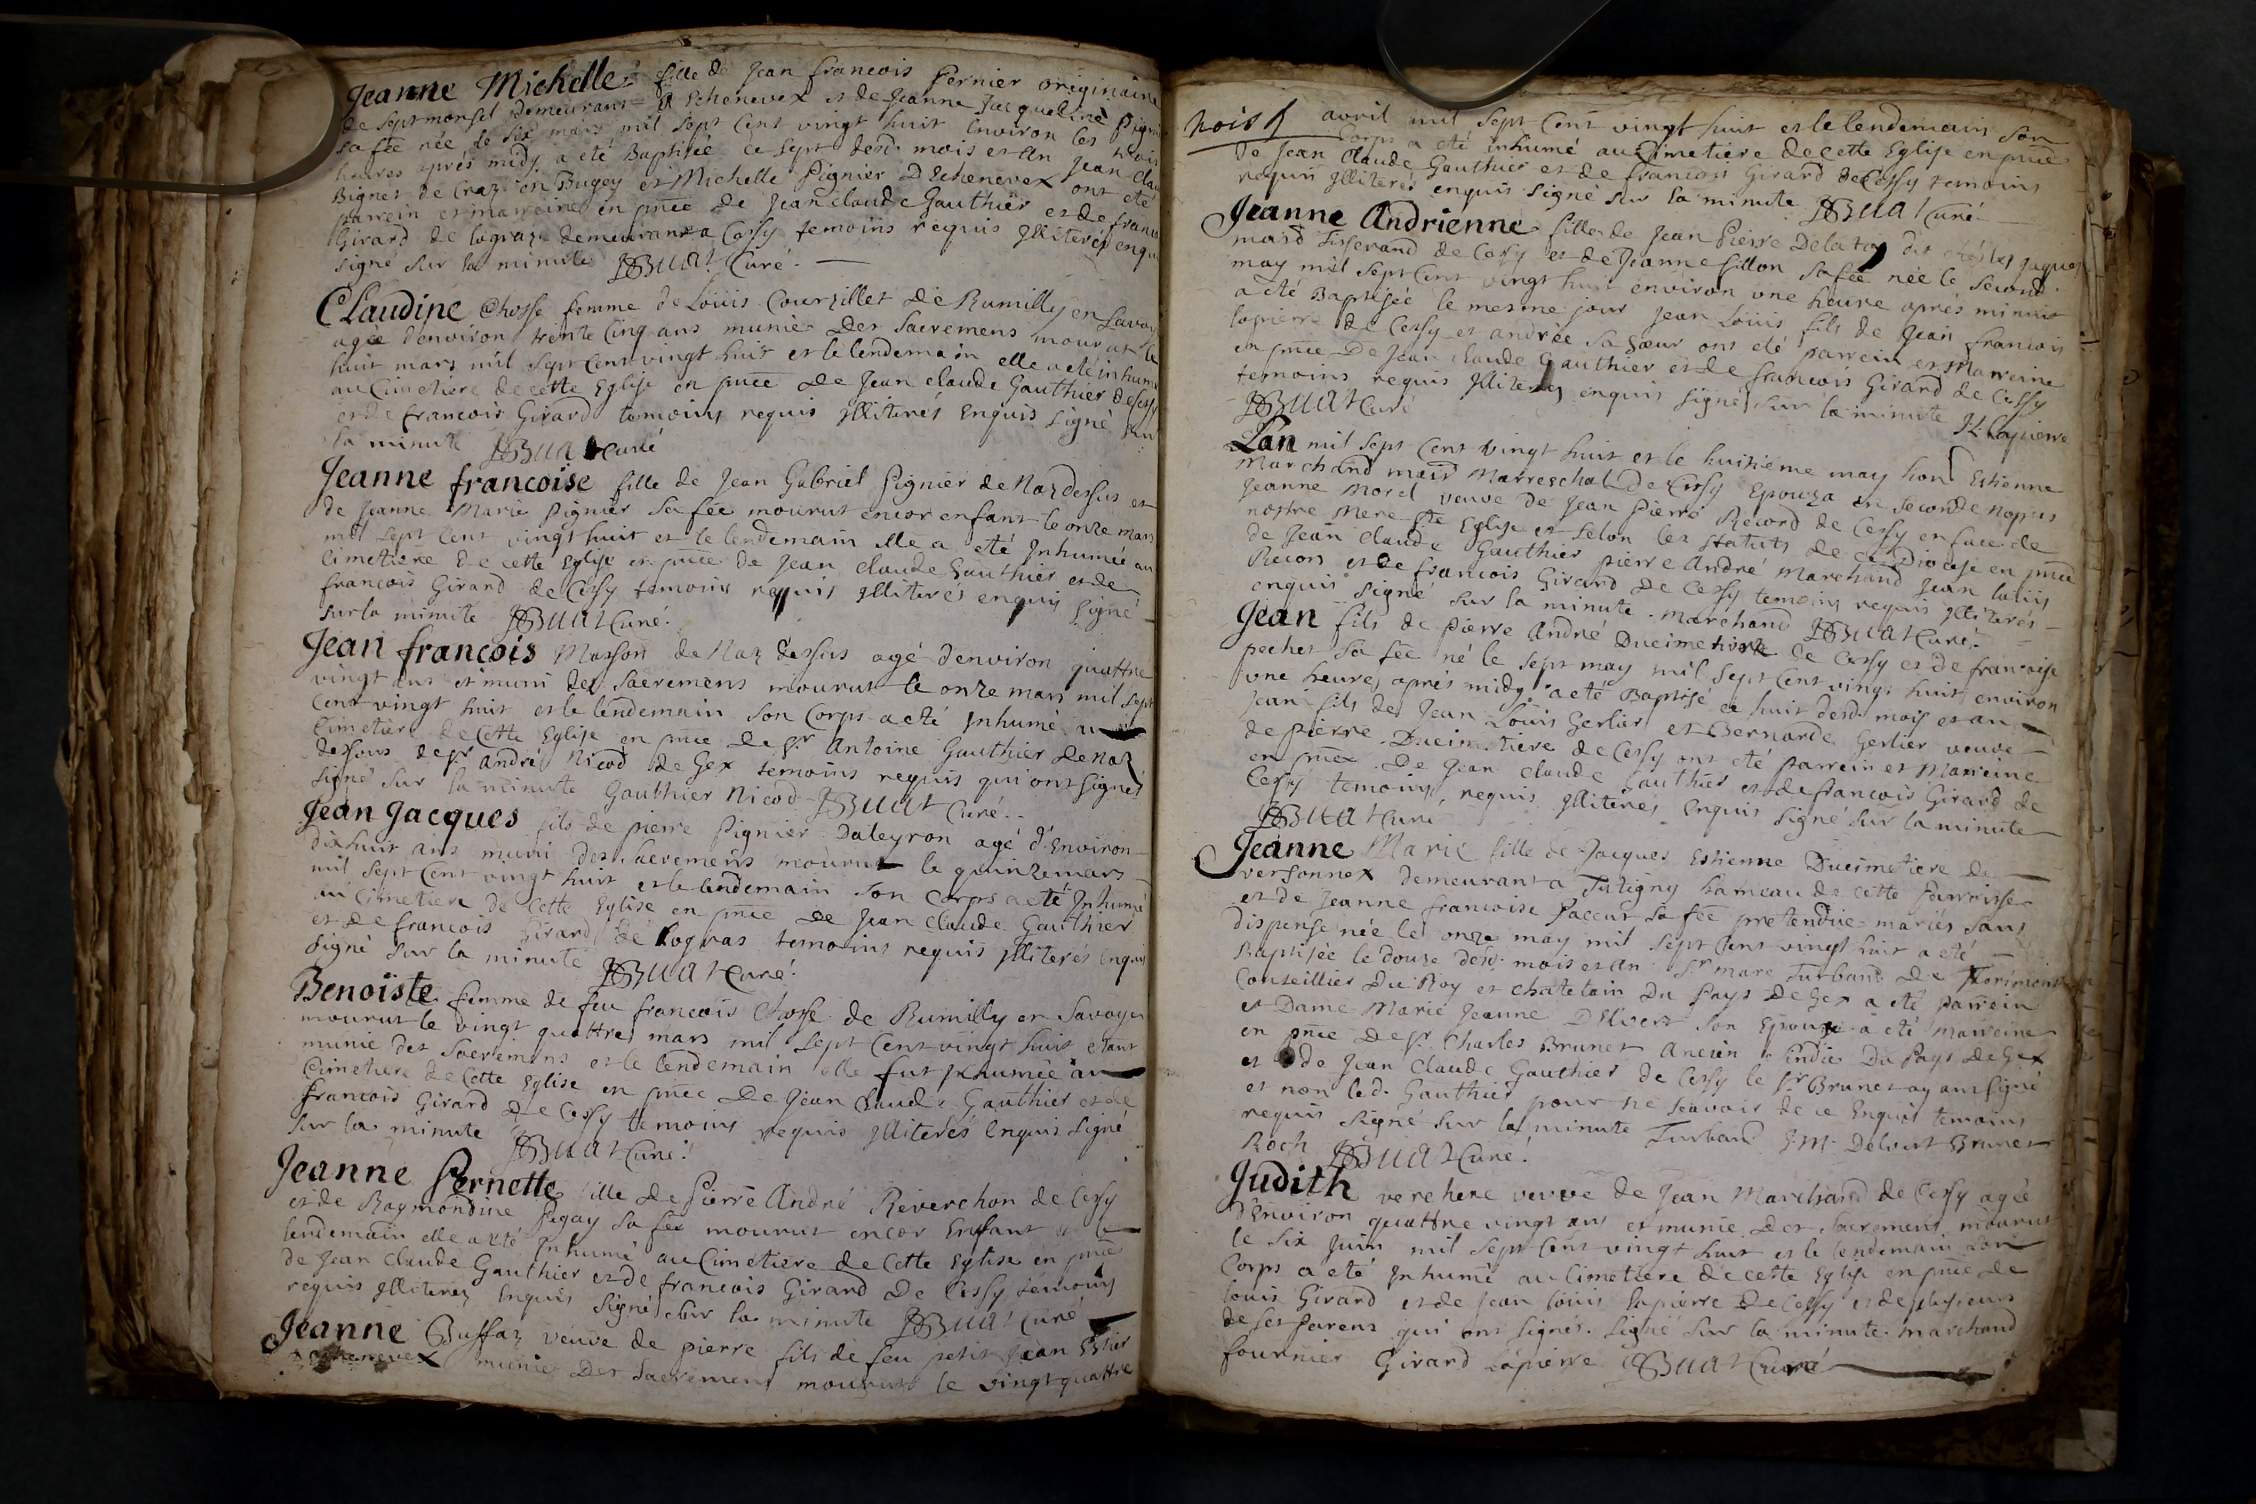 Jeanne Michelle fille de Jean francois Pernier originaire
de Septmonsel demeurant a Echenevex et de Jeanne Jacqueline Pignier
sa fée née le six mars mil sept cent vingt huit environ les trois
heures aprés midy a eté Baptisée ce sept desd. mois et an Jean Clau
Bignet de Craz en Bugey et Michelle Pignier D Echenevex ont eté
parrein et marreine en pnce de Jean claude Gauthier et de francois
Girard de logras demeurant a Cessy temoins requis Illiterés enquis
signé sur la minute JBuat Curé.
Claudine Chosse femme de Loüis Courzillet de Rumilly en Savoy
agée d'environ trente cinq ans munie des Sacremens mourut le
huit mars mil sept cent vingt huit et le lendemain elle a eté inhumé
au Cimetiere de cette Eglise en pnce de Jean claude Gauthier de Cessy
et de francois Girard temoins requis Illiterés Enquis Signé sur
la minute JBuat Curé
Jeanne francoise fille de Jean Gabriel Pignier de Naz dessus et
de Jeanne Marie Pignier sa fée mourut encor enfant le onze mars
mil sept cent vingt huit et le lendemain elle a eté Inhumée au
Cimetiere de cette Eglise en pnce de Jean claude Gauthier et de
francois Girard de Cessy temoins requis Illiterés enquis signé
sur la minute JBuat Curé.
Jean francois Masson de Naz dessus agé d'environ quattre
vingt ans et muni des Sacremens mourut le onze mars mil sept
cent vingt huit et le lendemain son Corps a eté Inhumé au
Cimetiere de cette Eglise en pnce de Sr. Antoine Gauthier de Naz
dessous de Sr. andré Nicod de Gex temoins requis qui ont Signés
signé sur la minute Gauthier Nicod JBuat Curé.
Jean Jacques fils de pierre Pignier Daleyron agé d'Environ
dixhuit ans muni des Sacremens mourut le quinze mars
mil sept cent vingt huit et le lendemain son Corps a eté Inhumé
au Cimetiere de cette Eglise en pnce de Jean claude Gauthier
et de francois Girard de Logras temoins requis Illiterés Enquis
signé sur la minute JBuat Curé.
Benoiste femme de feu francois Chosse de Rumilly en Savoye
mourut le vingt quattre mars mil sept cent vingt huit etant
munie des Sacremens et le lendemain elle fut Inhumée au
Cimetiere de cette Eglise en pnce de Jean Claude Gauthier et de
francois Girard de Cessy temoins requis Illiterés Enquis Signé
sur la minute JBuat Curé.
Jeanne Pernette fille de Pierre André Reverchon de Cessy
et de Raymondine Pegay sa fée mourut encor Enfant et le
lendemain elle a eté Inhumé au Cimetiere de cette Eglise en pnce
de Jean Claude Gauthier et de francois Girard de Cessy temoins
requis Illiterez Enquis Signé sur la minute JBuat Curé
Jeanne Buffaz veuve de pierre fils de feu petit Jean Estier
munie des Sacremens mourut le vingt quattre
avril mil sept cent vingt huit et le lendemain son
Corps a eté inhumé au Cimetiere de cette Eglise en pnce
de Jean Claude Gauthier et de francois Girard de Cessy temoins
requis Illiterés enquis Signé sur la minute JBuat Curé
Jeanne Andrienne fille de Jean Pierre Delatoy dit jaques
maitre Tisserand de Cessy et de Jeanne fillon sa fée née le second
may mil sept cent vingt huit environ une heure aprés minuit
a eté Baptisée le mesme jour Jean Loüis fils de Jean francois
lapierre de Cessy et andrée sa sœur ont eté parrein et Marreine
en pnce de Jean claude Gauthier et de francois Girard de Cessy
temoins requis Illiterés enquis signé sur la minute JL lapierre
JBuat Curé
Lan mil sept cent vingt huit et le huitieme may hon Estienne
Marchand maitre Marreschal de Cessy Epouza en seconde nopces
Jeanne Morel veuve de Jean Pierre Record de Cessy en face de
nostre Mere Ste Eglise et selon les statuts de ce Diocese en pnce
de Jean claude Gauthier pierre André Marchand Jean
Recors et de francois Girard de Cessy temoins requis Illiterés
enquis signé sur la minute. Marchand JBuat Curé.
Jean fils de pierre André Ducimetiere de Cessy et de francoise
pechet sa fée né le sept may mil sept cent vingt huit environ
une heure aprés midy a eté Baptisé ce huit desd. mois et an
Jean fils de Jean Loüis Gerlier et Bernarde Gerlier veuve
de pierre Ducimetiere de Cessy ont eté parrein et Marreine
en pnce de Jean claude Gauthier et de francois Girard de
Cessy temoins requis Illiterés Enquis signé sur la minute
JBuat Curé
Jeanne Marie fille de Jacques Estienne Ducimetiere de
versonnex demeurant a Tutigny hameau de cette Parroisse
et de Jeanne francoise Paccut sa fée pretendue mariés sans
dispense née le onze may mil sept cent vingt huit a eté
Baptisée le douze desd. mois et an Sr. marc Turband de
Conseillier du Roy et chatelain du Pays de Gex a eté parrein
et Dame Marie Jeanne Delvert son Epouse a eté marreine
en pnce de Sr. Charles Brunet Ancien Sindic du Pays de Gex
et de Jean Claude Gauthier de Cessy le Sr Brunet ayant signé
et non led. Gauthier pour ne sçavoir de ce Enquis temoins
requis Signé sur la minute Turband J.M. Delvert Brunet
Roch JBuat Curé.
Judith verchere veuve de Jean Marchand de Cessy agée
d'Environ quattre vingt ans et munie des Sacremens mourut
le six Juin mil sept cent vingt huit et le lendemain son
Corps a eté Inhumé au Cimetiere de cette Eglise en pnce de
Louis Girard et de Jean Loüis lapierre de Cessy et de plusieurs
de ses Parens qui ont signés. signé sur la minute. marchand
fournier Girard Lapierre JBuat Curé